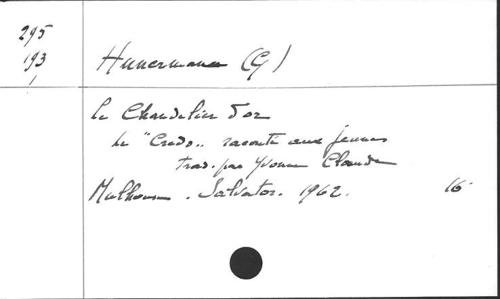 295
193
Hunermann (G)
le Chandelier d'or
le "Credo" raconté aux jeunes
trad. par Yvonne Claude
Mulhouse. Salvator. 1962. 16°